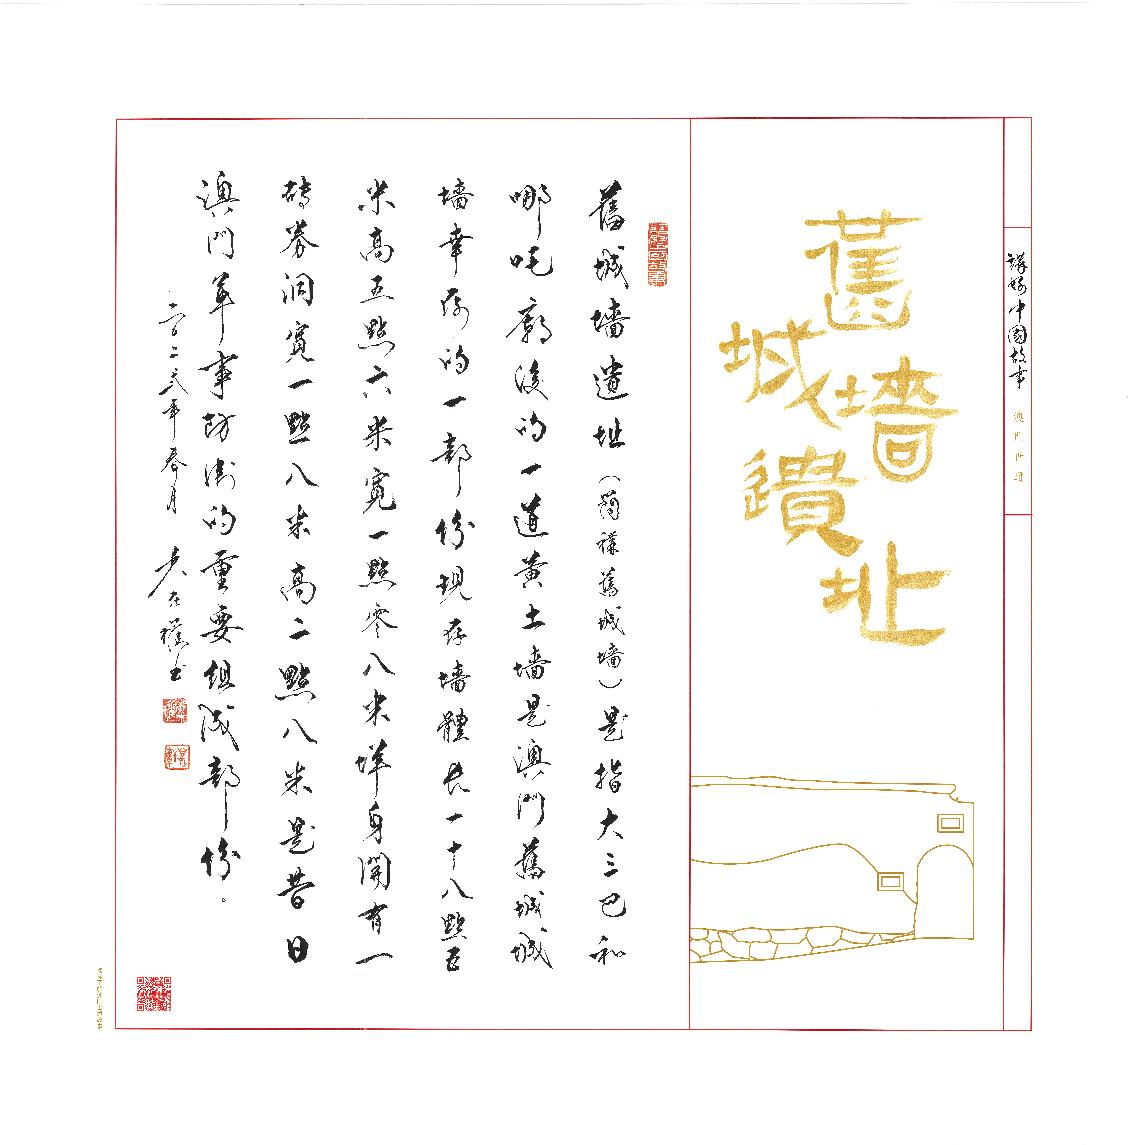 講好中國故事 澳門世遺
舊城墻遺址
舊城墻遺址（簡稱舊城墻）是指大三巴和
哪吒廟後的一道黃土墻是澳門舊城城
墻幸存的一部份現存墻體長一十八點五
米高五點六米寬一點零八米墻身開有一
磚券洞寬一點八米高二點八米是昔日
澳門軍事防衛的重要組成部份。
二〇二弍年春月 吴在權書